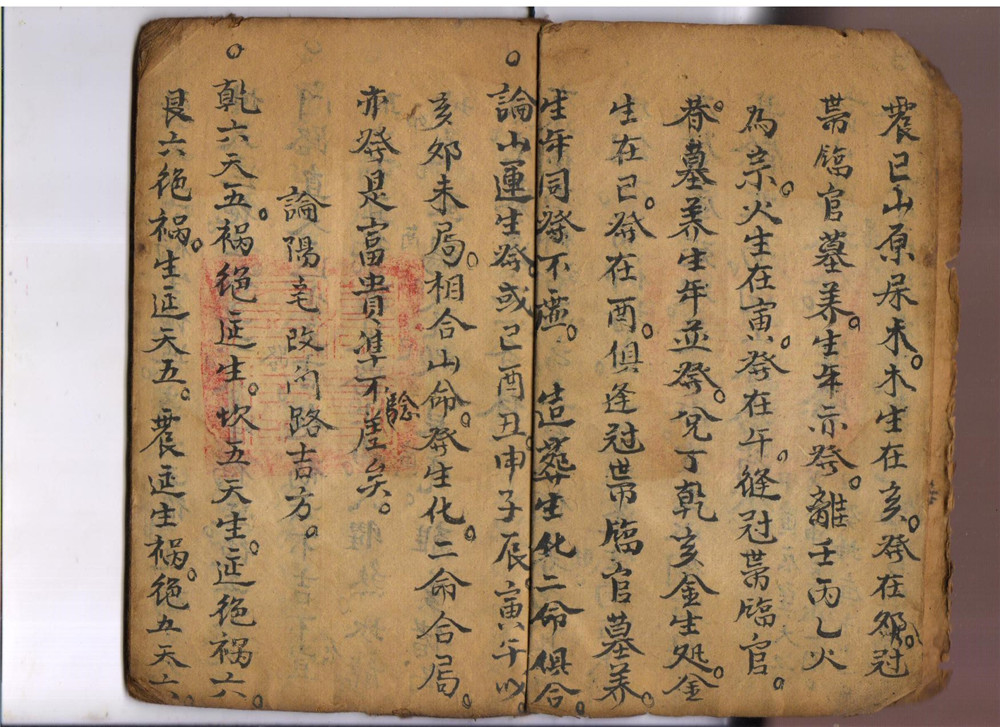 震巳山原屬木。木生在亥。癸在卯。冠
帶臨官墓养生年亦癸。離壬丙乙火
為宗。火生在寅。癸在午。縫冠帶臨官。
春。墓养生年並癸。兌丁乾亥金生処。金
生在巳。癸在酉。俱逢冠帶臨官墓养。
生年同癸不 造葬生化二命俱合。
論山運生癸。或巳酉丑申子辰寅午以
亥卯未局。相合山命。癸生化。二命合局。
亦癸是富貴準不差矣。
驗
論陽宅改向路吉方。
乾六天五。禍絕延生。坎五天生。延絕禍六。
艮六絕禍。生延天五。震延生禍。絕五天六。